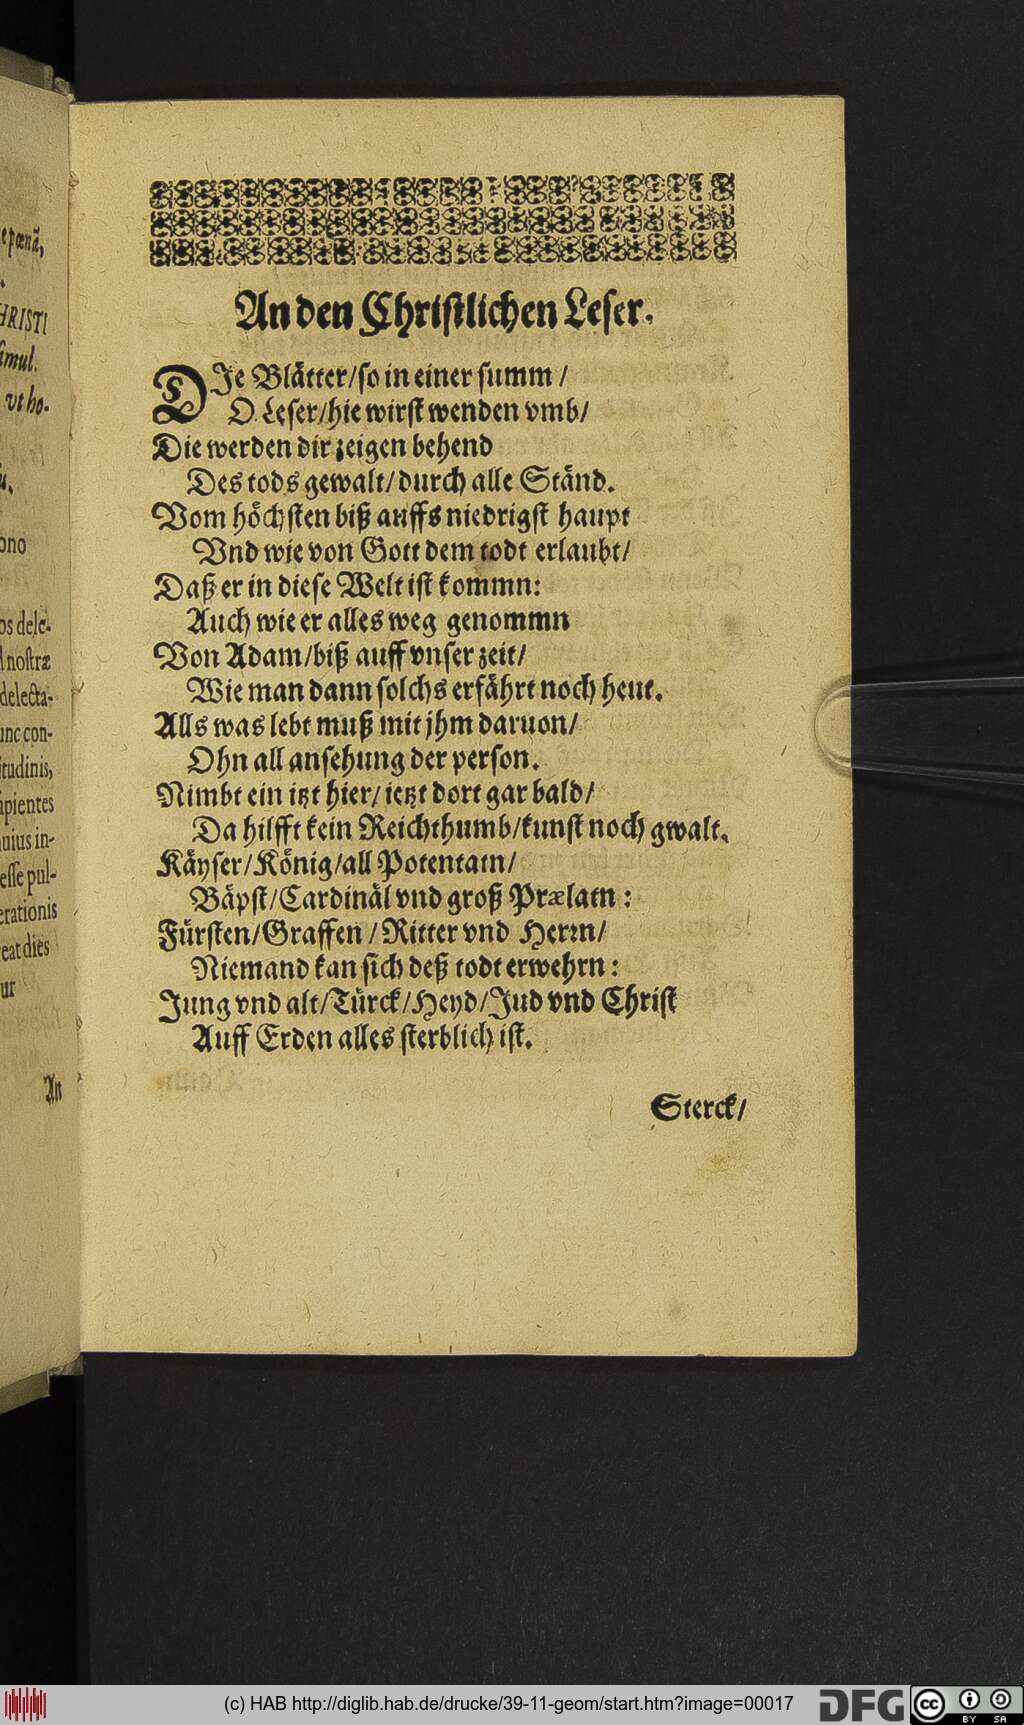 epœnā,
HRISTI
simul.
vt ho-
ono
os dele-
nostræ
delecta-
unc con-
itudinis,
apientes
uius in-
esse pul-
erationis
eat dies
ur
An
An den Christlichen Leser.
DIe Blätter/so in einer summ/
O Leser/hie wirst wenden vmb/
Die werden dir zeigen behend
Des tods gewalt/durch alle Ständ.
Vom höchsten biß auffs niedrigst haupt
Vnd wie von Gott dem todt erlaubt/
Daß er in diese Welt ist kommn:
Auch wie er alles weg genommn
Von Adam/biß auff vnser zeit/
Wie man dann solchs erfährt noch heut.
Alls was lebt muß mit jhm daruon/
Ohn all ansehung der person.
Nimbt ein itzt hier/ietzt dort gar bald/
Da hilfft kein Reichthumb/kunst noch gwalt.
Käyser/König/all Potentatn/
Bäpst/Cardinäl vnd groß Prælatn:
Fürsten/Graffen/Ritter vnd Herrn/
Niemand kan sich deß todt erwehrn:
Jung vnd alt/Türck/Heyd/Jud vnd Christ
Auff Erden alles sterblich ist.
Sterck/
(c) HAB http://diglib.hab.de/drucke/39-11-geom/start.htm?image=00017
DFG
cc
BY SA